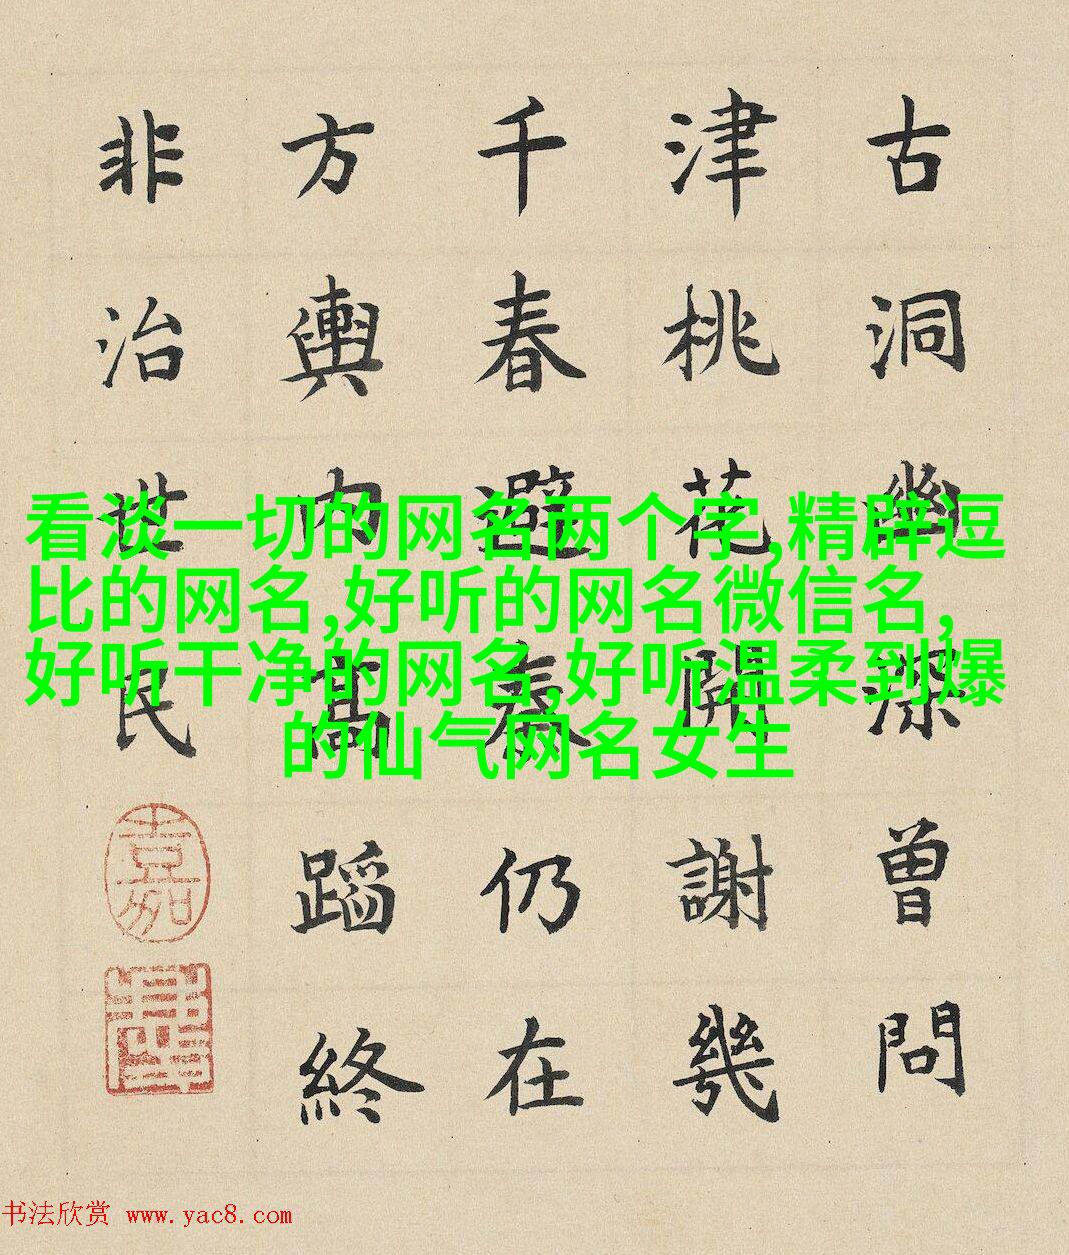 古洞幽深曾問
津桃花開謝幾
千春避秦仍在
方輿内髙蹈終
非治世民
看淡一切的网名两个字,精辟逗
比的网名,好听的网名微信名,
好听干净的网名,好听温柔到爆
的仙气网名女生
书法欣赏 www.yac8.com